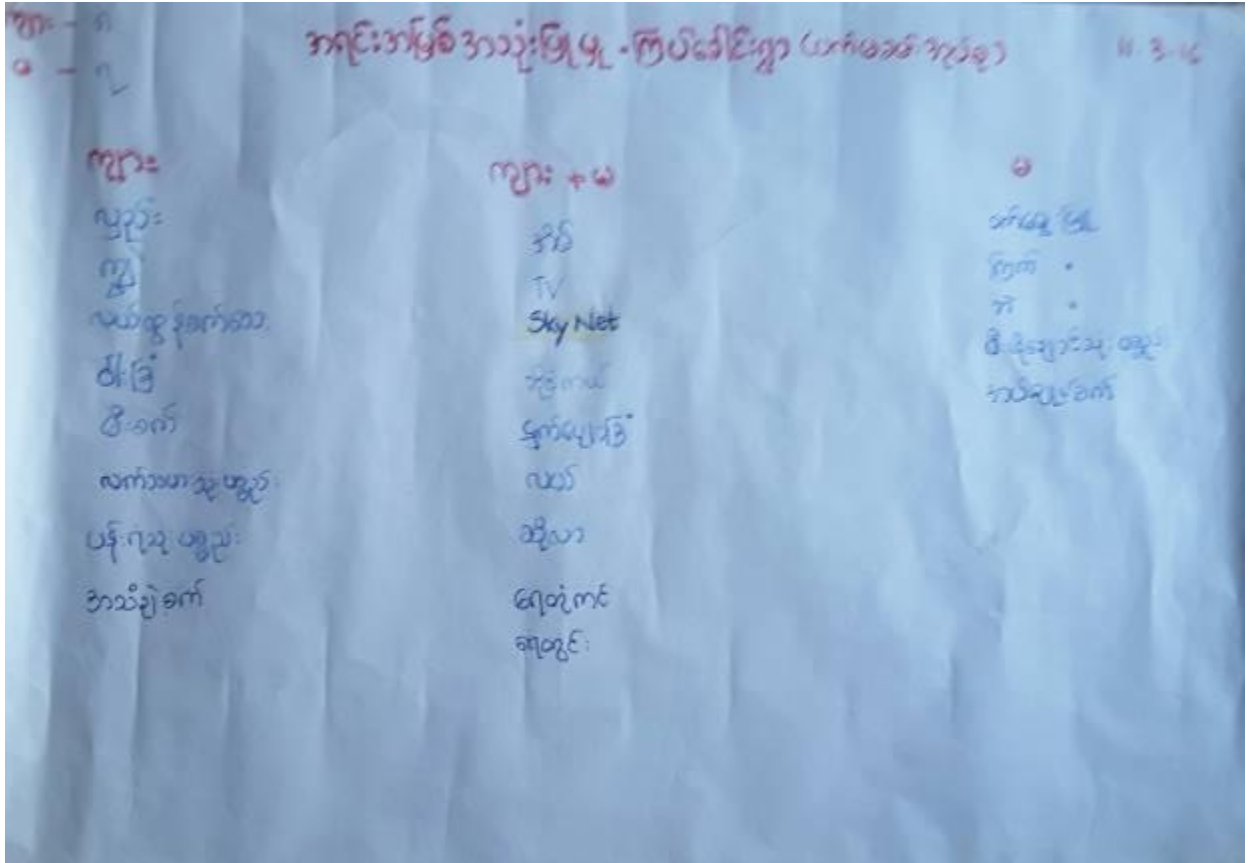 ကျား - ၈
မ - ၇
အရင်းအမြစ် အသုံးပြုမှု - ကြပ်ခေါင်းရွာ
11.3.16
ကျား
လှည်း
ကျွဲ
လယ်ထွန်စက်
ဝါးခြံ
မီးစက်
လက်သမားသုံးပစ္စည်း
ပန်းရံသုံးပစ္စည်း
အသံချဲ့စက်
ကျား + မ
အိမ်
TV
Sky Net
ငှက်ပျောခြံ
လယ်
ဆိုလာ
ရေတိုင်ကီ
ရေတွင်း
မ
ဝက်မွေးမြူ
ကြက် "
ဘဲ "
မီးဖိုချောင်သုံးပစ္စည်း
အပ်ချုပ်စက်